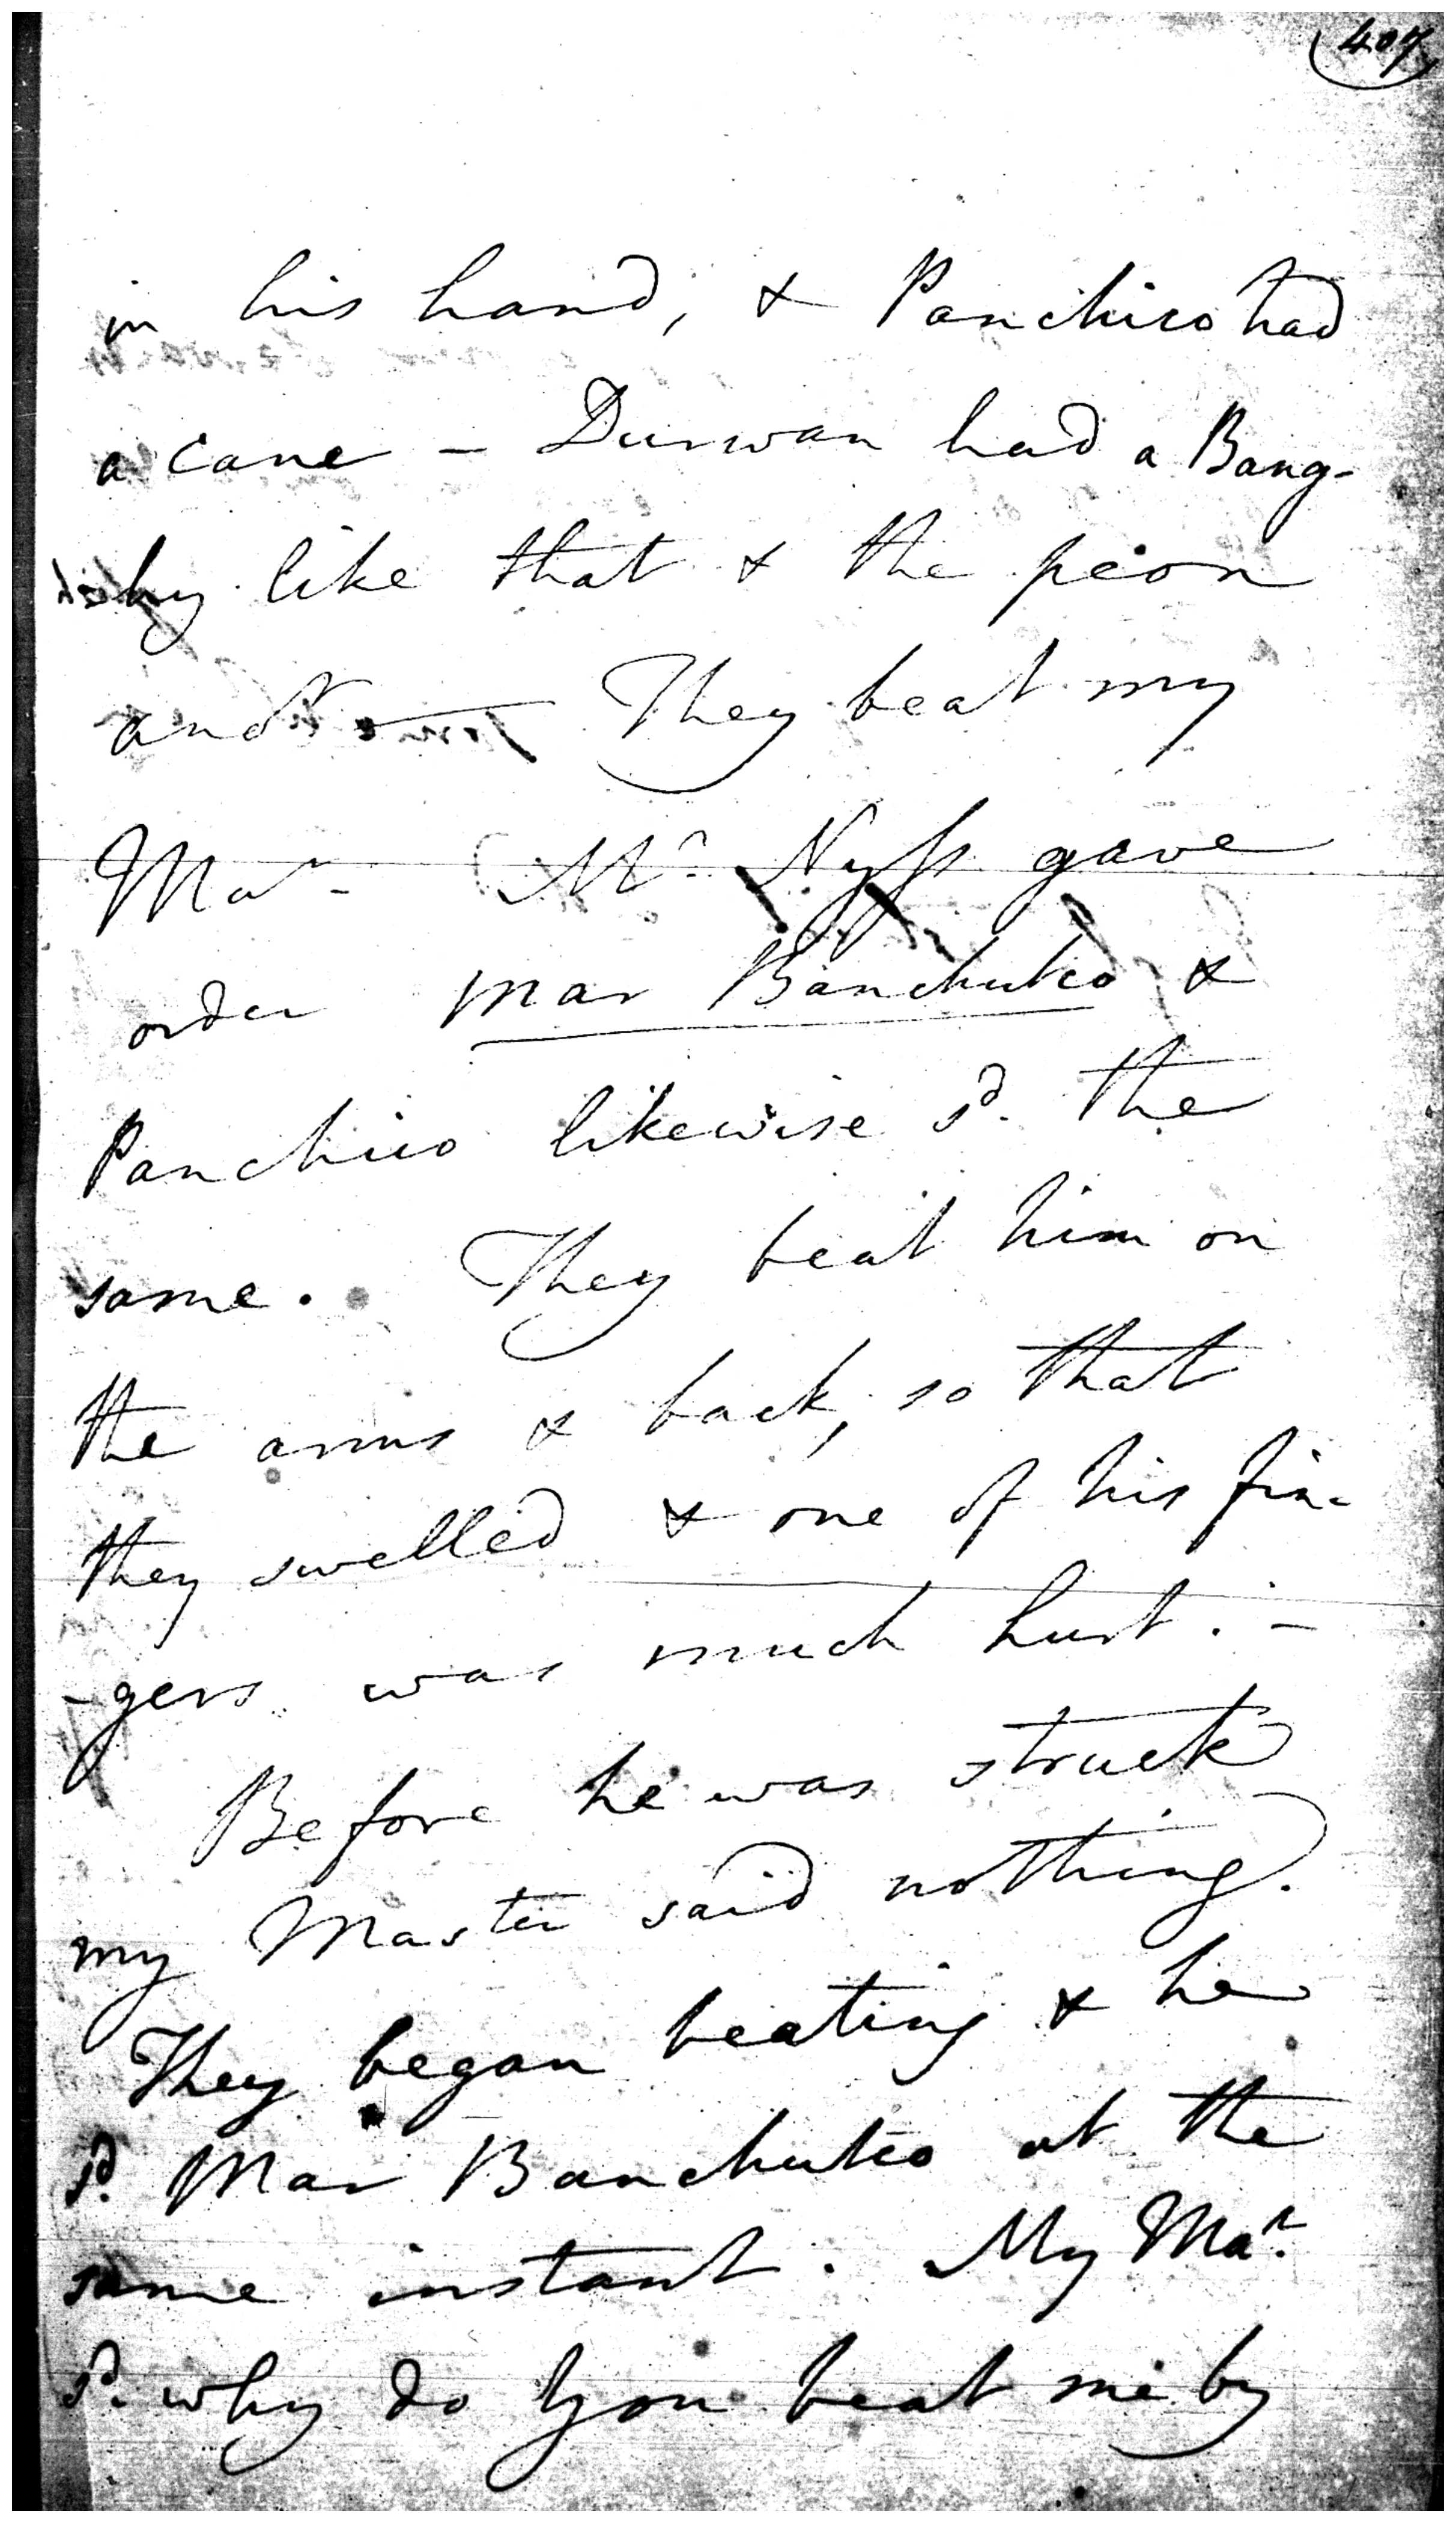 407
in his hand, & Panchico had
a cane - Durwan had a Bang-
-hy like that & the peon
anoʳ — They beat my
Maʳ - Mʳ. Nyss gave
order mar Banchutco &
Panchico likewise sᵈ. the
same. They beat him on
the arms & back, so that
they swelled & one of his fin-
-gers was much hurt. -
Before he was struck
my Master said nothing.
They began beating & he
sᵈ. Mar Banchutco at the
same instant. My Maʳ.
sᵈ. why do you beat me by